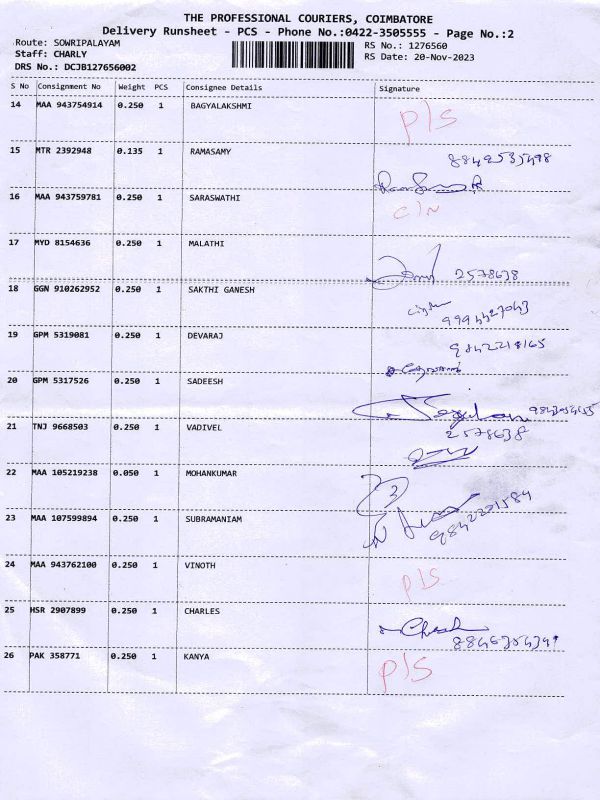 THE PROFESSIONAL COURIERS, COIMBATORE
Delivery Runsheet - PCS - Phone No.:0422-3505555 - Page No.:2
Route: SOWRIPALAYAM RS No.: 1276560
Staff: CHARLY RS Date: 20-Nov-2023
DRS No.: DCJB127656002
S No Consignment No Weight PCS Consignee Details Signature
14 MAA 943754914 0.250 1 BAGYALAKSHMI P/S
15 MTR 2392948 0.135 1 RAMASAMY
16 MAA 943759781 0.250 1 SARASWATHI C/N
17 MYD 8154636 0.250 1 MALATHI 2578638
18 GGN 910262952 0.250 1 SAKTHI GANESH
19 GPM 5319081 0.250 1 DEVARAJ
20 GPM 5317526 0.250 1 SADEESH
21 TNJ 9668503 0.250 1 VADIVEL 2578638
22 MAA 105219238 0.050 1 MOHANKUMAR
23 MAA 107599894 0.250 1 SUBRAMANIAM 9842201584
24 MAA 943762100 0.250 1 VINOTH P/S
25 HSR 2907899 0.250 1 CHARLES
26 PAK 358771 0.250 1 KANYA P/S